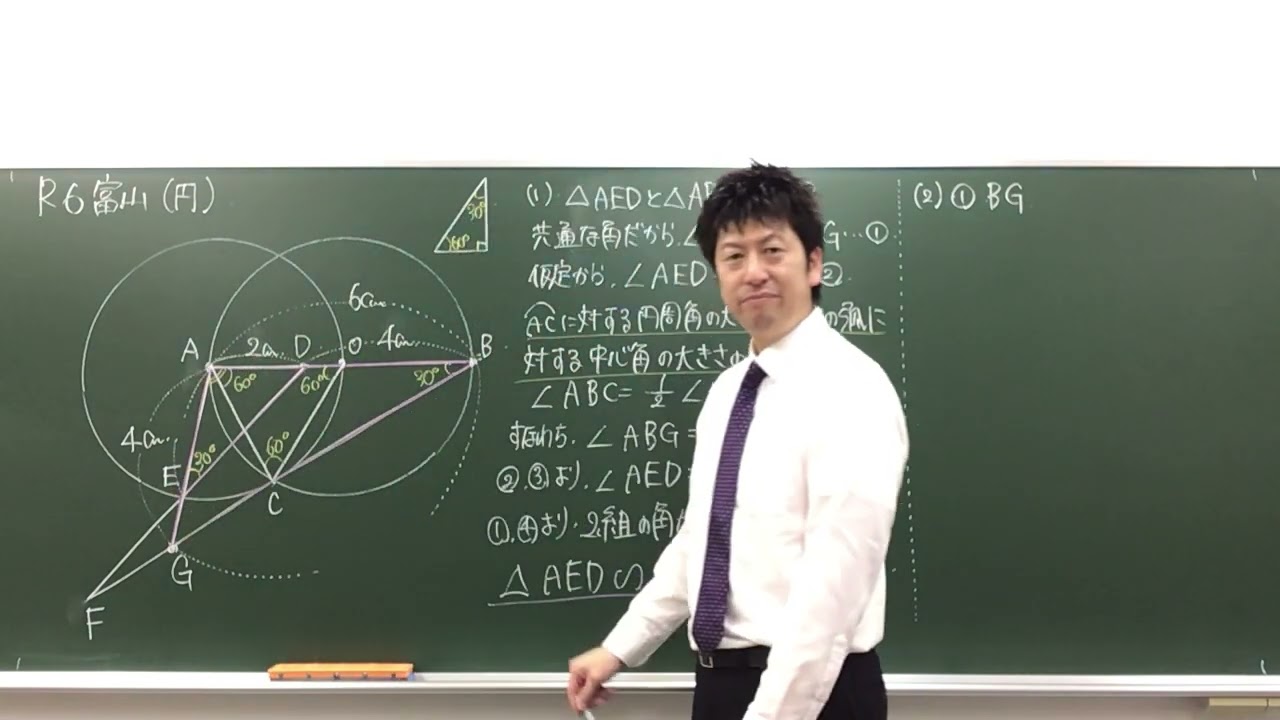 R6富山(円)
30°
60°
6cm
A
2cm
D
O
4cm
B
60°
60°
30°
4cm
30°
60°
E
C
G
F
(1) △AEDと△AB
共通な角だから、∠
G…①
仮定から、∠AED
②
ACに対する円周角の大
の弧に
対する中心角の大きさの
∠ABC= 1/2 ∠
すなわち、∠ABG=
②,③より、∠AED=
①,④より、2組の角が
△AED∽
(2) ① BG